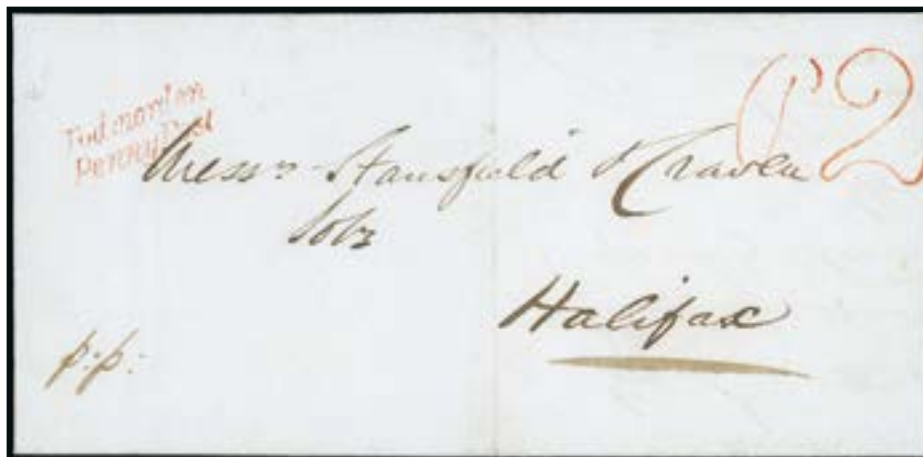 Todmorden
Penny Post
P2
Messrs Stansfield & Craven
Solrs
Halifax
p:p: